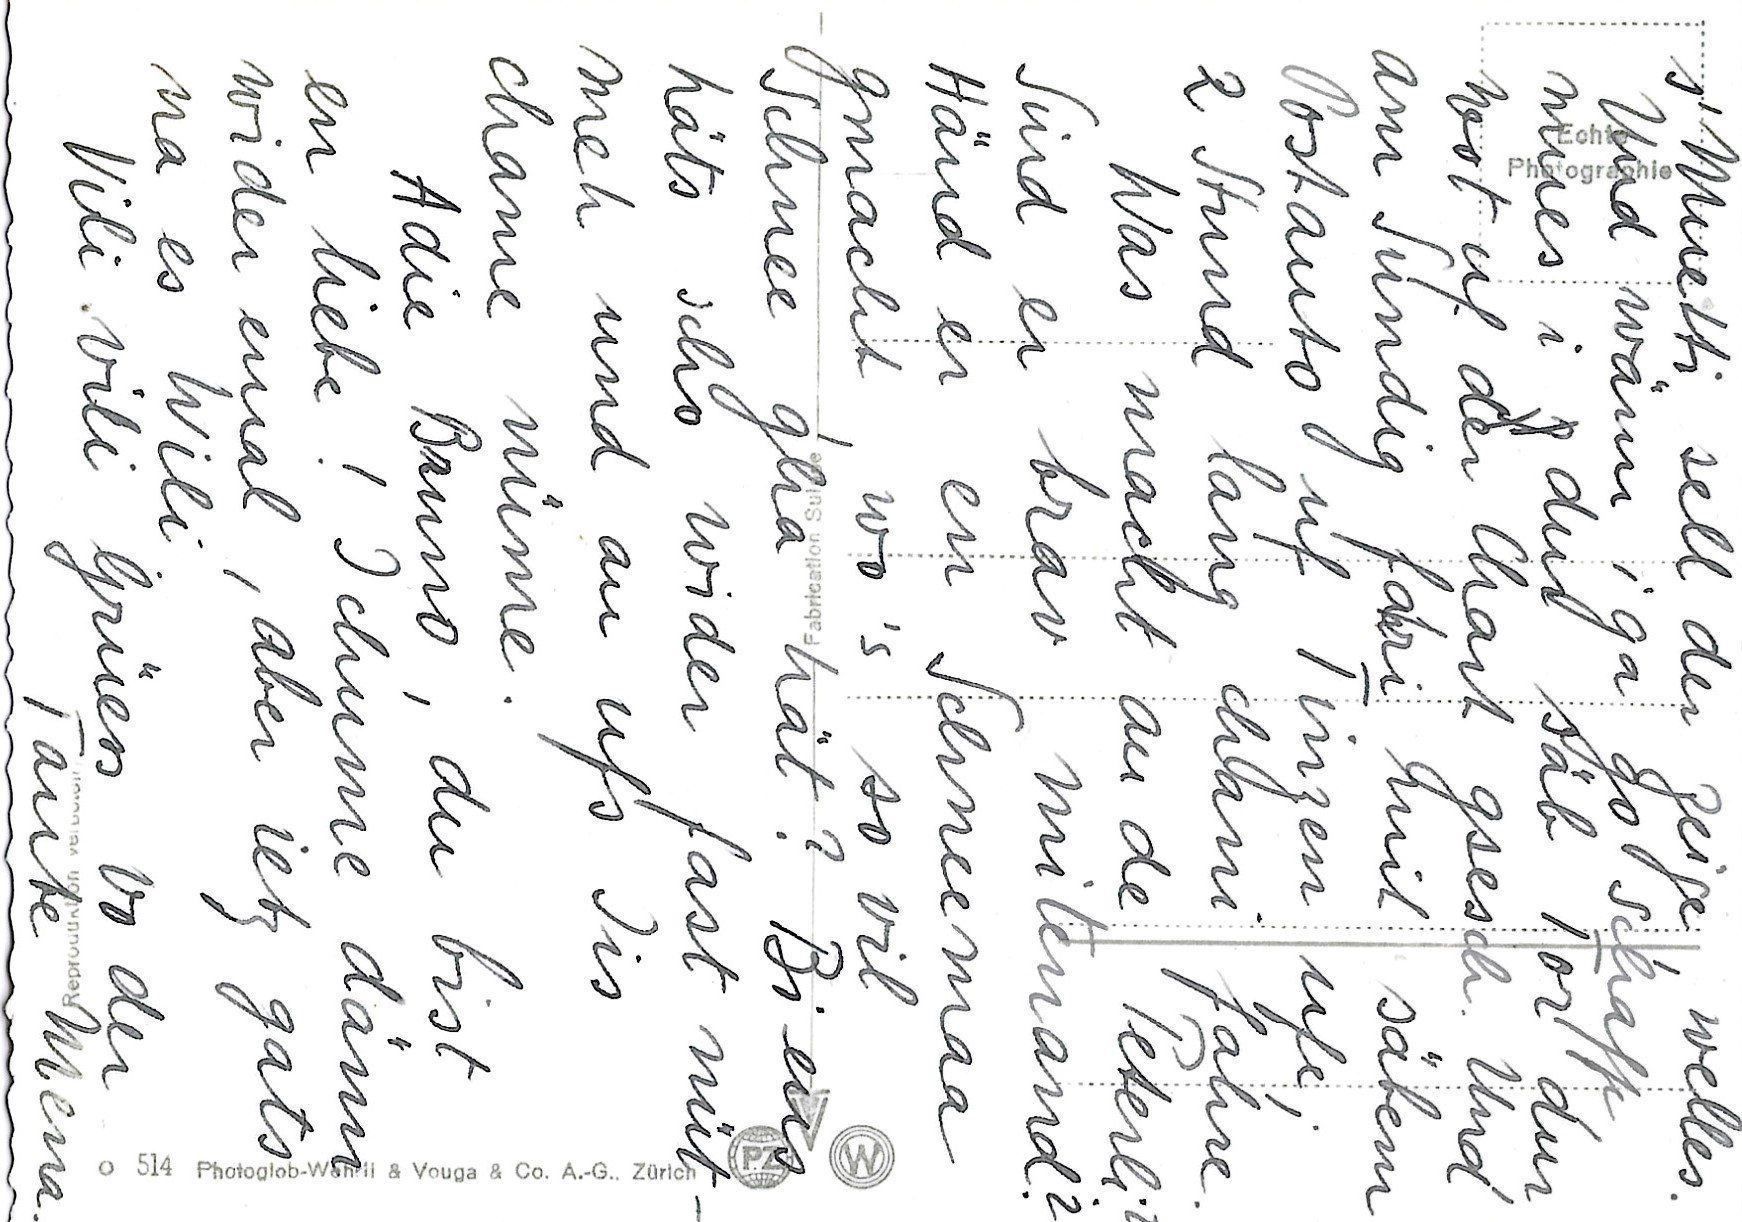 s'Muetti sell der zeige welles.
Und wänn i ga go schaffe
mues i dur säb Tor dur
wot uf der Chart gsesch. Und
am Sundig fahri mit säbem
Postauto uf Tinzen ufe,
2 Stund lang chlani fahre.
Was macht au de Peterli?
Sind er brav mitenand?
Händ er en Schneemaa
gmacht, wo's so vil
Schnee gha hät? Bi eus
häts scho wider fast nüt-
meh und au ufs Jis
chame nümme.
Adie Banno, du bist
en liebe! I chume dänn
wider emal, aber ietz gats
na es Wili.
Vili vili Grüess vo der
Tante Mena.
Echte
Photographie
Fabrication Suisse
Reproduktion verboten
514 Photoglob-Wehrli & Vouga & Co. A.-G., Zürich
PZ
W